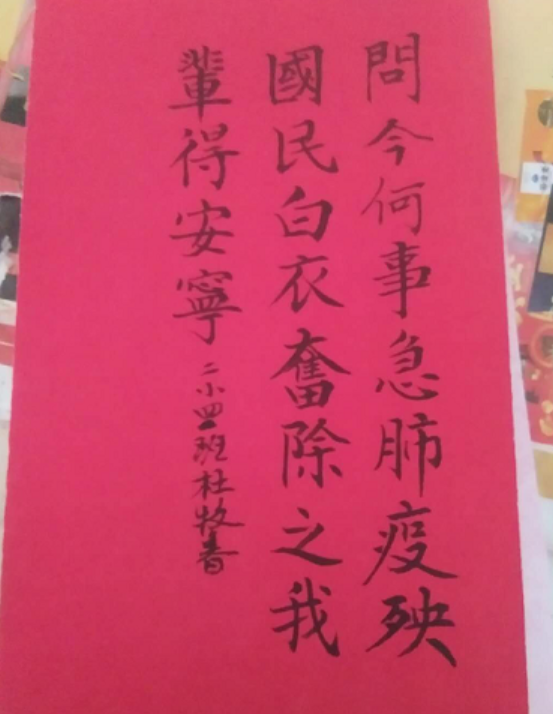 問今何事急肺疫殃
國民白衣奮除之我
輩得安寧
二小四班杜牧春